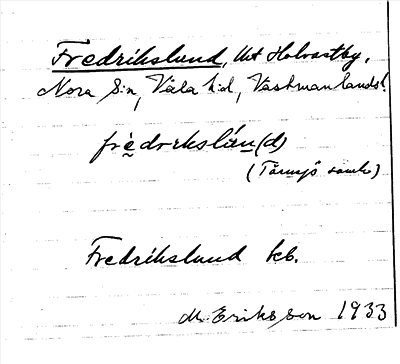 Fredrikslund, Ukt Holvastby,
Nora S:n, Våla h:d, Västmanlands l.
frèdrekslún(d)
(Tärnsjö samh)
Fredrikslund kb.
M. Eriksson 1933